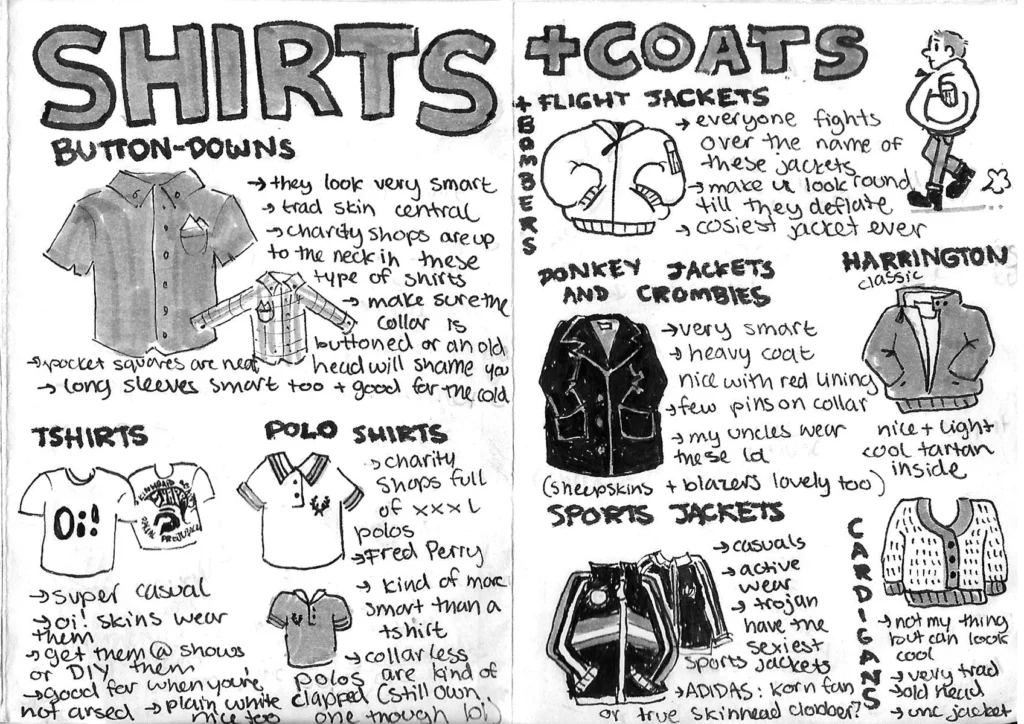 SHIRTS
BUTTON-DOWNS
→ they look very smart
→ trad skin central
→ charity shops are up
to the neck in these
type of shirts
→ make sure the
collar is
buttoned or an old
head will shame you
→ pocket squares are neat
→ long sleeves smart too + good for the cold
TSHIRTS
Oi!
SKINHEADS
AGAINST
RACIAL PREJUDICE
→ super casual
→ oi! skins wear
them
→ get them @ shows
or DIY them
→ good for when you're
not arsed
→ plain white
nice too
POLO SHIRTS
→ charity
shops full
of xxxL
polos
→ Fred Perry
→ kind of more
smart than a
tshirt
→ collarless
polos are kind of
clapped (still own
one though lol)
+ COATS
+ BOMBERS
+ FLIGHT JACKETS
→ everyone fights
over the name of
these jackets
→ make u look round
till they deflate
→ cosiest jacket ever
DONKEY JACKETS
AND CROMBIES
→ very smart
→ heavy coat
nice with red lining
→ few pins on collar
→ my uncles wear
these lol
(sheepskins + blazers lovely too)
HARRINGTON
classic
nice + light
cool tartan
inside
SPORTS JACKETS
→ casuals
→ active
wear
→ trojan
have the
sexiest
sports jackets
→ ADIDAS: korn fan
or true skinhead clobber?
CARDIGANS
→ not my thing
but can look
cool
→ very trad
→ old head
→ unc jacket